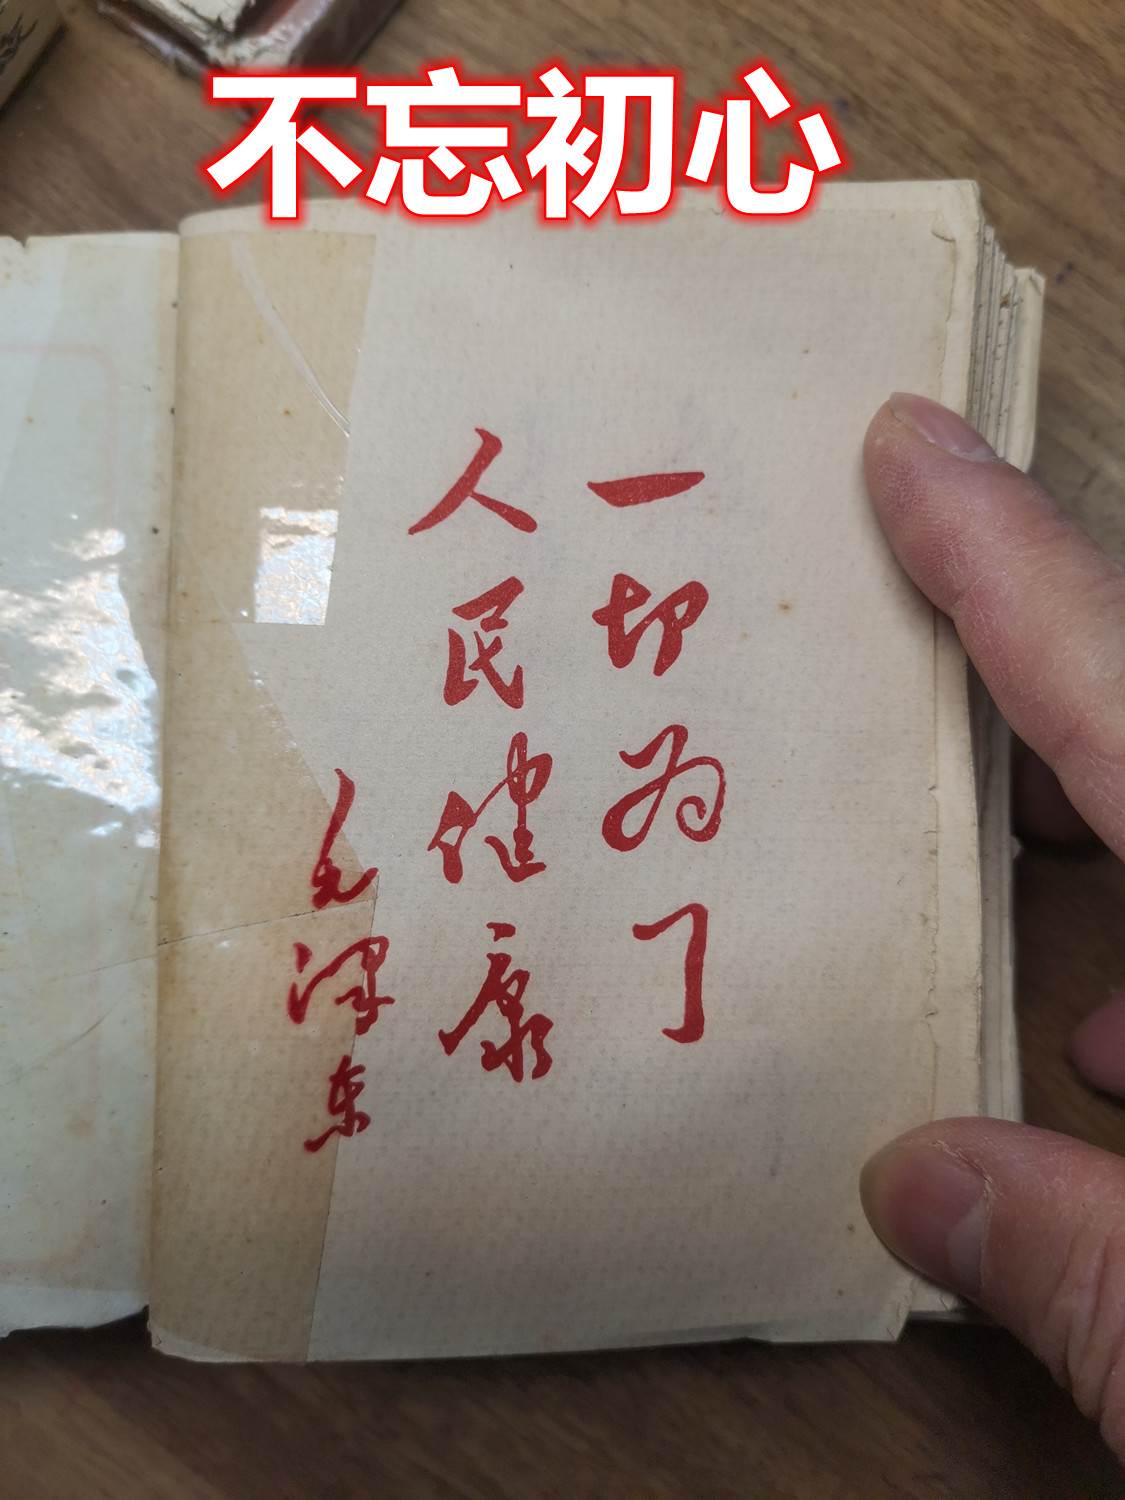 不忘初心
一切为了
人民健康
毛泽东